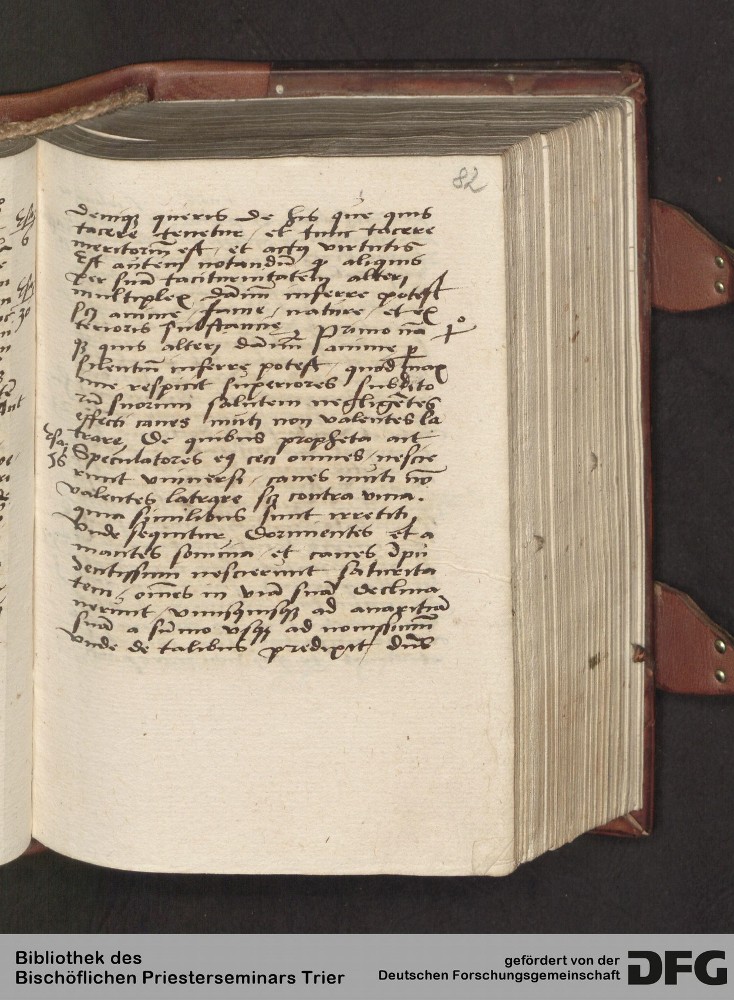 82
deniq3 queris de his que quis
tacere tenetur, et tunc tacere
meritoriū est, et actꝰ virtutis
Est autem notandū ꝙ aliquis
per suā taciturnitatem alteri
multiplex dāmū inferre potest
scꝫ anime, fame, nature, et ex
terioris substantie, Primo nā
1º
quis alteri dāmū anime ꝑ
silentiū inferre potest, quod max
ime respicit superiores subdito
rū suorum salutem negligētes
effecti canes muti non valentes la
trare, De quibus propheta ait
Esa.
56
Speculatores eꝯ ceci omnes, nescie
runt vniuersi, canes muti nō
valentes latrare scꝫ contra vicia.
quia similibus sunt irretiti
vnde sequitur, dormientes et a
mantes somnia, et canes īpu
dentissimi nescierunt saturita
tem, om̄es in viā suā declina
uerunt, vnusquisqꝫ ad auaritiā
suā a sūmo vsqꝫ ad nouissimū
vnde de talibus predixit dn̄s
Bibliothek des
Bischöflichen Priesterseminars Trier
gefördert von der
Deutschen Forschungsgemeinschaft
DFG